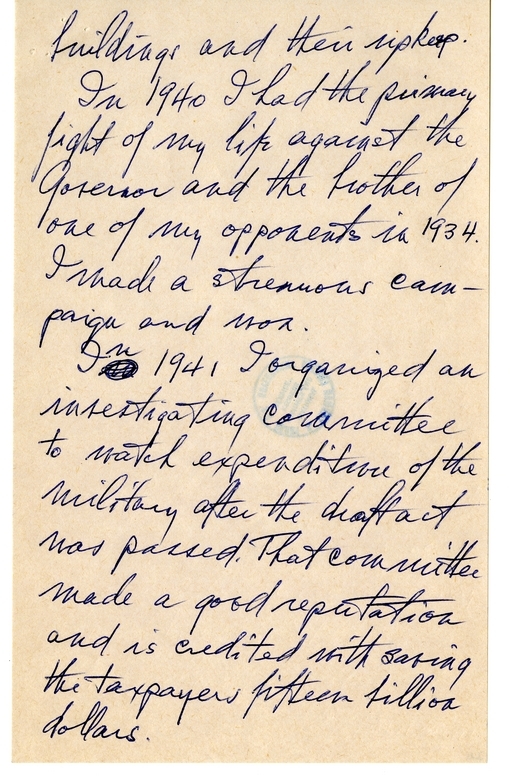 buildings and their upkeep.
In 1940 I had the primary
fight of my life against the
Governor and the brother of
one of my opponents in 1934.
I made a strenuous cam-
paign and won.
In 1941 I organized an
investigating committee
to watch expenditure of the
military after the draft act
was passed. That committee
made a good reputation
and is credited with saving
the taxpayers fifteen billion
dollars.